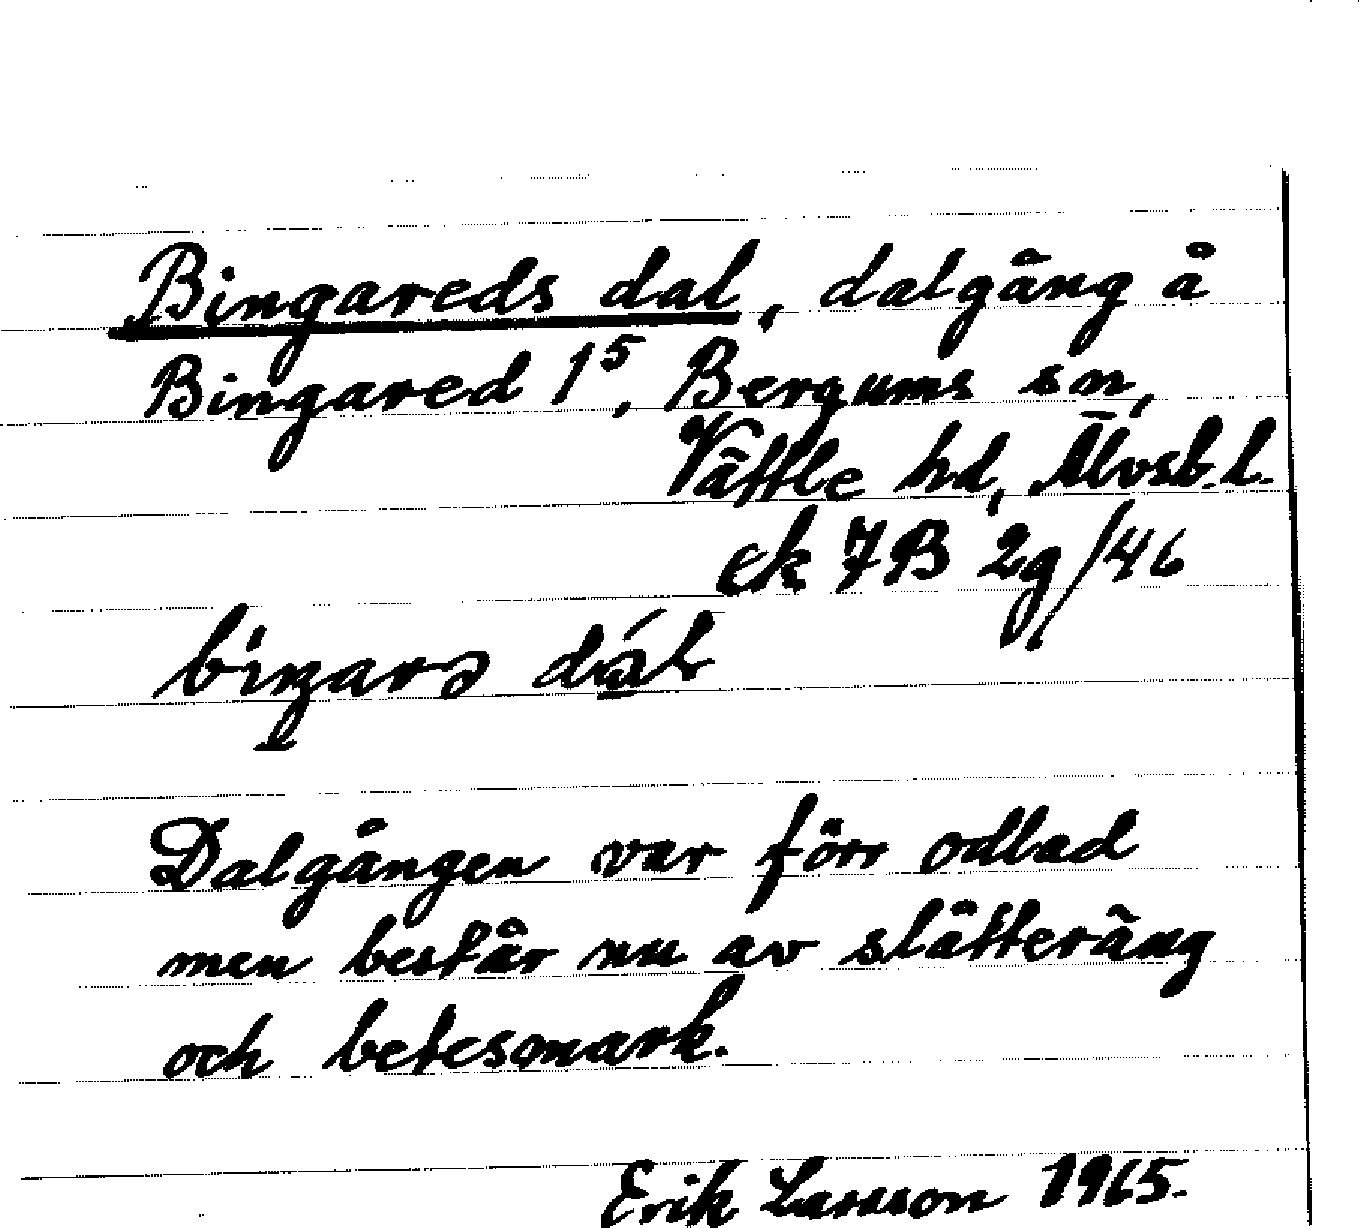 Bingareds dal, dalgång å
Bingared 1⁵, Bergums sn,
Vättle hd, Älvsb. l.
ek 7B 2g/46
dál
Dalgången var förr odlad
men består nu av slätteräng
och betesmark.
Erik Larsson 1965.